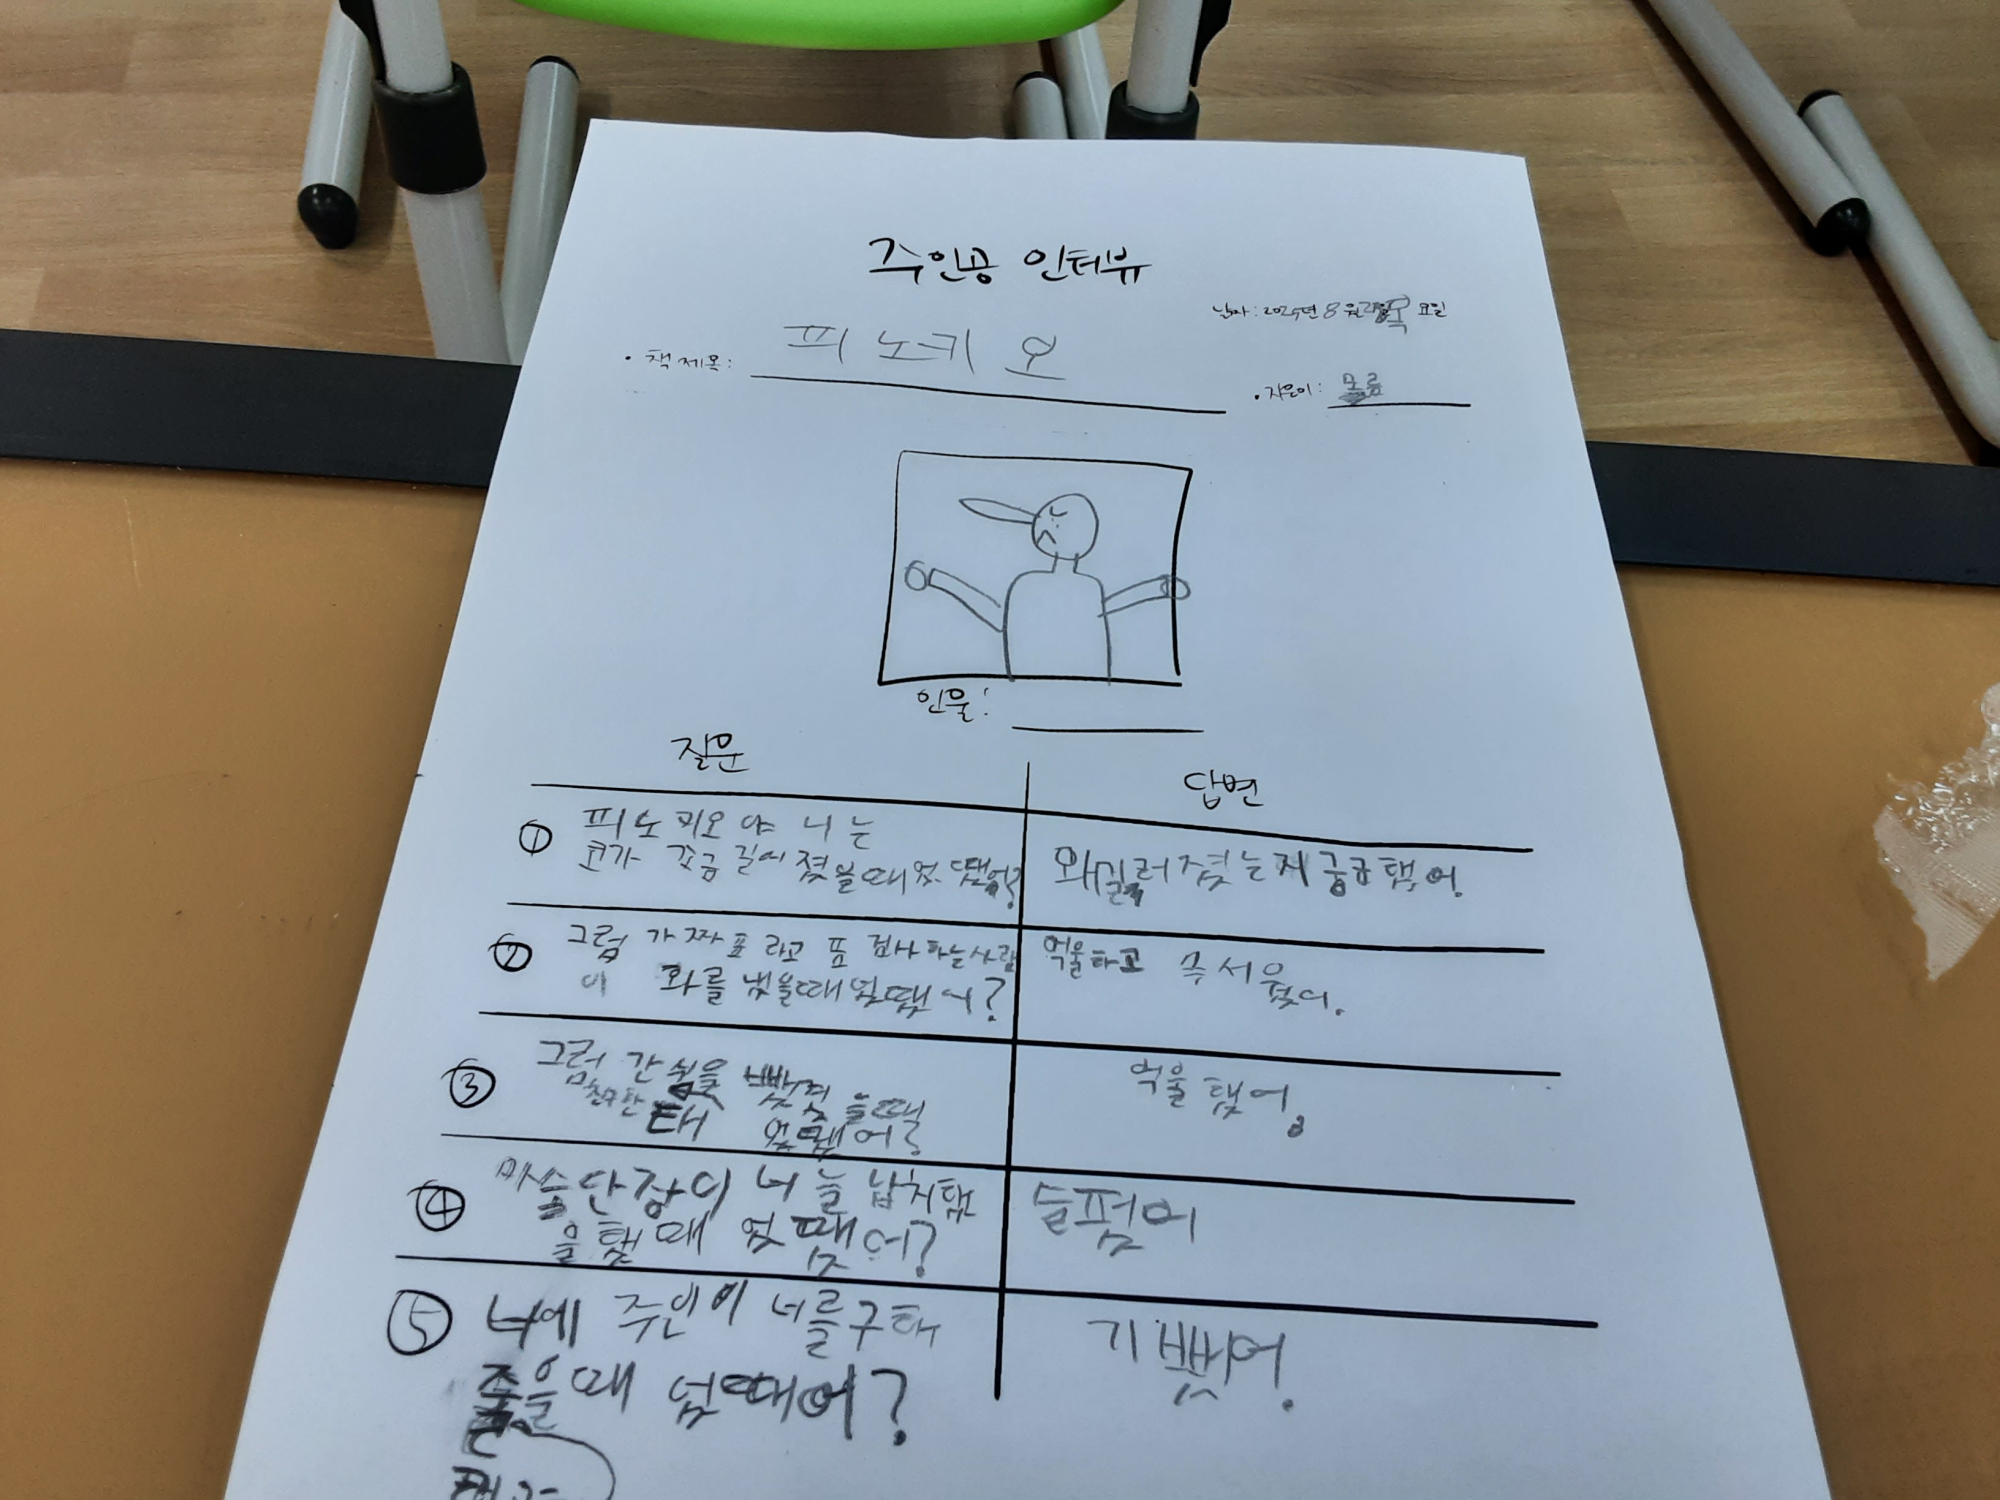 주인공 인터뷰
날짜: 2025년 8월 목요일
• 책 제목: 피노키오
• 지은이: 모름
인물:
질문 답변
① 피노키오야 너는
코가 조금 길어졌을때 었땠어?
왜 길러졌는지 궁금탰어.
② 그럼 가짜표라고 표 검사하는사람
이 화를 냈을때 었땠어?
억울하고 무서웠어.
③ 그럼 간식을 뺐겼을때
었땠어?
억울탰어.
④ 마술단장이 너를 납치탰
을 었땠어?
슬펐어
⑤ 너에 주인이 너를구태
줄을때 었때어?
기뻤어.